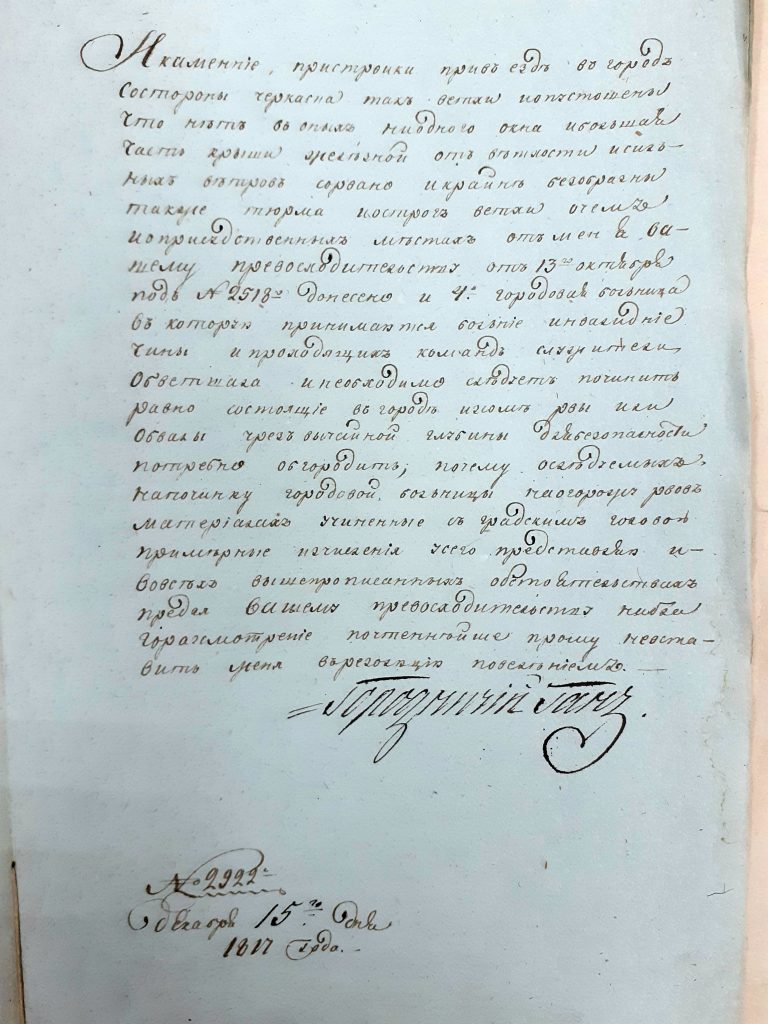 Якаменніе, пристроики привъездѣ въ городъ
Состороны черкасна такъ ветхи иопустошены
Что нѣтъ въ оныхъ ниодного окна ибольшая
Часть крыши желѣзной отъ вѣтхости исиль-
ныхъ вѣтровъ сорвано икрайнѣ безобразны
также тюрма иострогъ ветхи очемъ
иоприсудственныхъ мѣстахъ отъ меня ва-
шему превосходительству отъ 13го октября
подъ № 2518мъ донесено и 4е городовая больница
въ которую принимаются больніе инвалидніе
Чины ипроходящихъ командъ служители,
Обветшала инеобходимо слѣдуетъ починить
равно состоящіе въ городѣ изюмѣ рвы или
Обвалы чрезвычайной глубины длябезопасности
потребно обгородить; почему ослѣдуемыхъ
напочинку городовой больницы наогорожу рвовъ
матеріалахъ учиненные съ градскимъ головою
примѣрные изчисленія усего представляя и-
вовсѣхъ вышепрописанныхъ обстоятельствахъ
предая вашему превосходительству
горазсмотреніе почтеннѣйше прошу неоста-
вить меня въ резолюціи повелѣніемъ.
Городничій Ганъ.
№ 2922й
декабря 15го дня
1817 года.